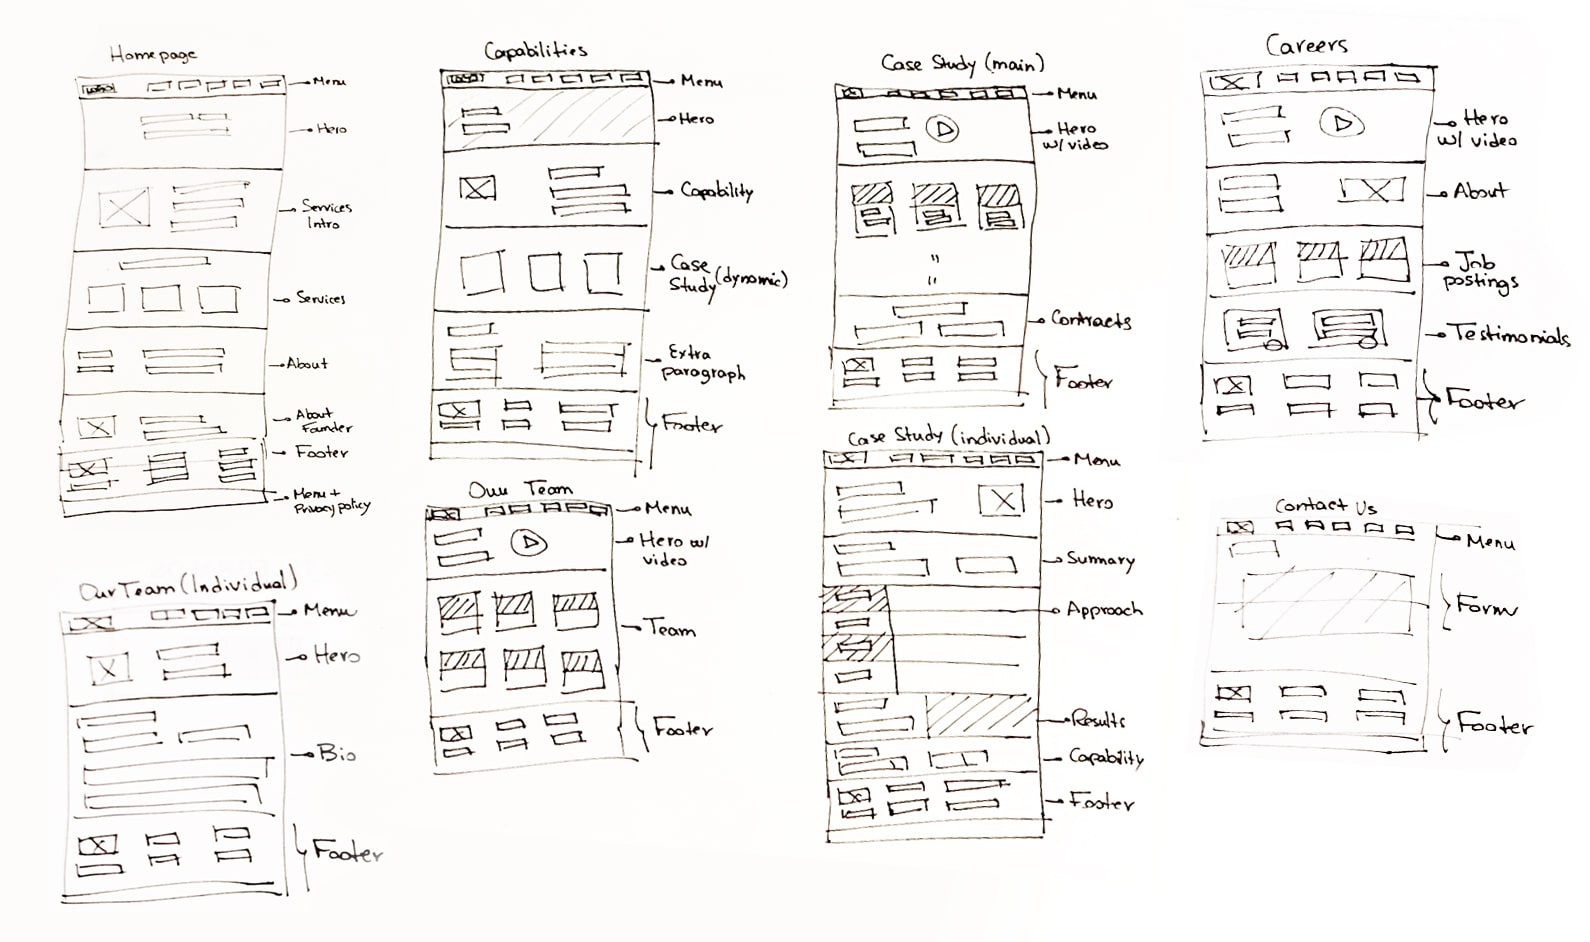 Homepage
Menu
Hero
Services
Intro
Services
About
About
Founder
Footer
Menu +
Privacy policy
Our Team (Individual)
Menu
Hero
Bio
Footer
Capabilities
Menu
Hero
Capability
Case
Study (dynamic)
Extra
paragraph
Footer
Our Team
Menu
Hero w/
video
Team
Footer
Case Study (main)
Menu
Hero
w/ video
Contracts
Footer
Case Study (individual)
Menu
Hero
Summary
Approach
Results
Capability
Footer
Careers
Hero
w/ video
About
Job
postings
Testimonials
Footer
Contact Us
Menu
Form
Footer